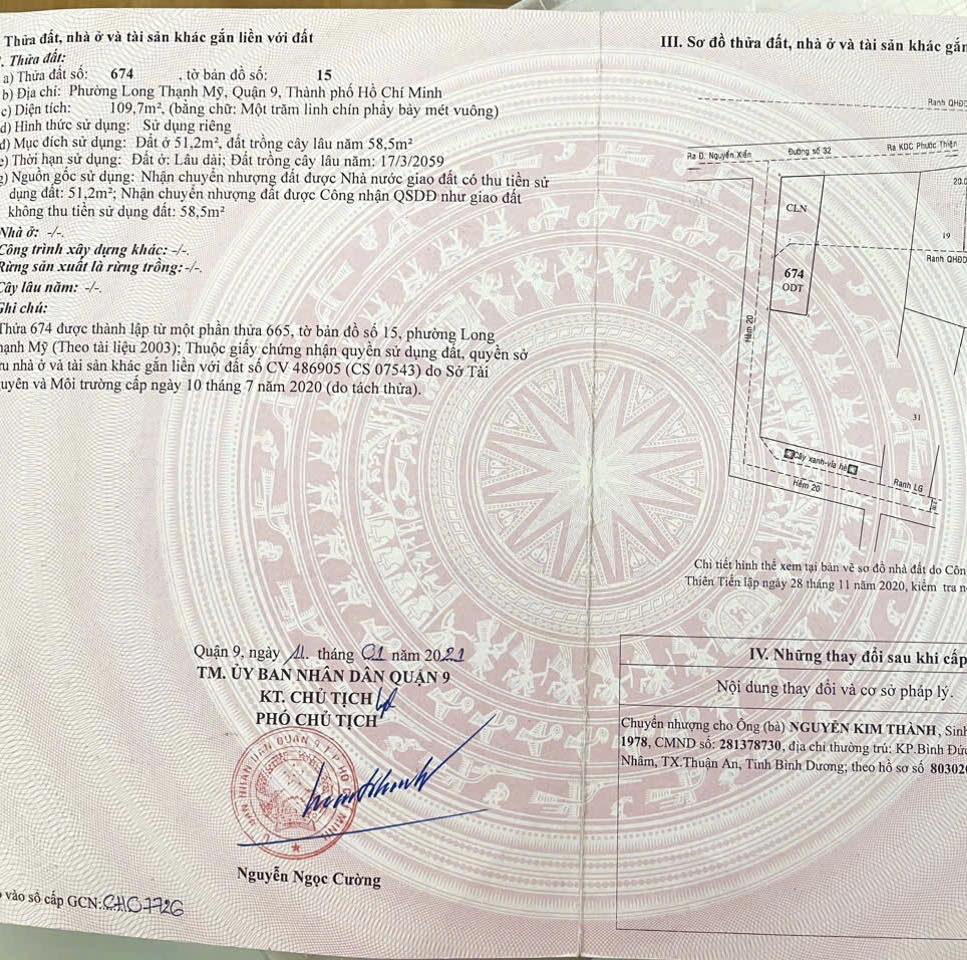 Thửa đất, nhà ở và tài sản khác gắn liền với đất
. Thửa đất:
a) Thửa đất số: 674 , tờ bản đồ số: 15
b) Địa chỉ: Phường Long Thạnh Mỹ, Quận 9, Thành phố Hồ Chí Minh
c) Diện tích: 109,7m², (bằng chữ: Một trăm linh chín phẩy bảy mét vuông)
d) Hình thức sử dụng: Sử dụng riêng
đ) Mục đích sử dụng: Đất ở 51,2m², đất trồng cây lâu năm 58,5m²
e) Thời hạn sử dụng: Đất ở: Lâu dài; Đất trồng cây lâu năm: 17/3/2059
g) Nguồn gốc sử dụng: Nhận chuyển nhượng đất được Nhà nước giao đất có thu tiền sử
dụng đất: 51,2m²; Nhận chuyển nhượng đất được Công nhận QSDĐ như giao đất
không thu tiền sử dụng đất: 58,5m²
Nhà ở: -/-.
Công trình xây dựng khác: -/-.
Rừng sản xuất là rừng trồng: -/-.
Cây lâu năm: -/-.
Ghi chú:
Thửa 674 được thành lập từ một phần thửa 665, tờ bản đồ số 15, phường Long
hạnh Mỹ (Theo tài liệu 2003); Thuộc giấy chứng nhận quyền sử dụng đất, quyền sở
ru nhà ở và tài sản khác gắn liền với đất số CV 486905 (CS 07543) do Sở Tài
uyên và Môi trường cấp ngày 10 tháng 7 năm 2020 (do tách thửa).
Quận 9, ngày 11. tháng 01 năm 2021
TM. ỦY BAN NHÂN DÂN QUẬN 9
KT. CHỦ TỊCH
PHÓ CHỦ TỊCH
ỦY BAN NHÂN DÂN QUẬN 9 T.P HỒ CHÍ MINH
Nguyễn Ngọc Cường
vào sổ cấp GCN: CH07726
III. Sơ đồ thửa đất, nhà ở và tài sản khác gắn
Ranh QHĐĐ
Ra Đ. Nguyễn Xiển
Đường số 32
Ra KDC Phước Thiện
20.0
CLN
19
Ranh QHĐĐ
674
ODT
Hẻm 20
31
Cây xanh-vỉa hè
Hẻm 20
Ranh LG
Chi tiết hình thể xem tại bản vẽ sơ đồ nhà đất do Côn
Thiên Tiến lập ngày 28 tháng 11 năm 2020, kiểm tra n
IV. Những thay đổi sau khi cấp
Nội dung thay đổi và cơ sở pháp lý.
Chuyển nhượng cho Ông (bà) NGUYỄN KIM THÀNH, Sinh
1978, CMND số: 281378730, địa chỉ thường trú: KP.Bình Đức
Nhâm, TX.Thuận An, Tỉnh Bình Dương; theo hồ sơ số 803020